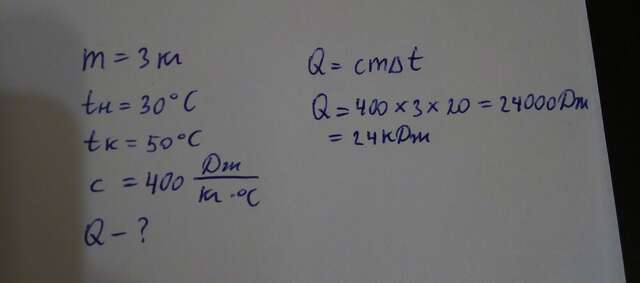 m = 3 кг
tн = 30°C
tк = 50°C
c = 400 Дж/кг·°C
Q – ?
Q = cmΔt
Q = 400 × 3 × 20 = 24000 Дж
= 24 кДж